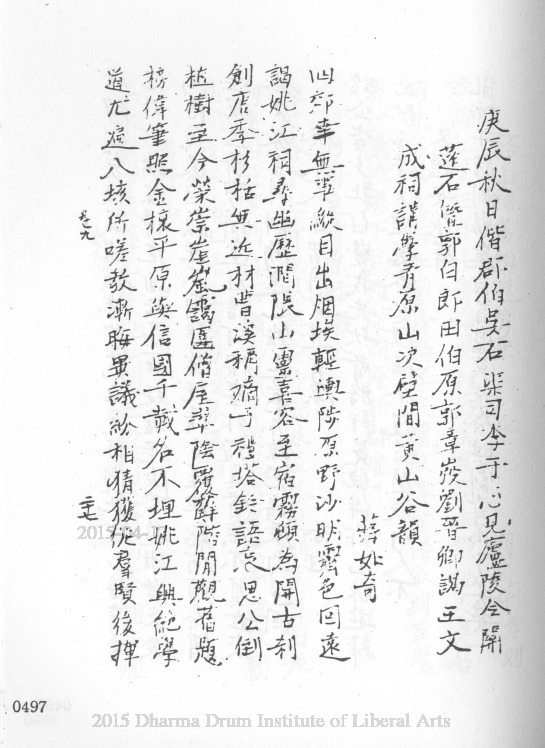 庚辰秋日偕郡伯吳石渠司李于心見廬陵令關
蓮石偕郭白郎田伯原郭章峧劉晉卿謁王文
成祠講學青原山次壁間黃山谷韻
蔣如奇
山郊幸無事縱目出烟埃輕輿陟原野沙明霽色回遠
謁姚江祠尋幽歷澗隈山靈喜客至宿霧頓為開古刹
創唐季杉栝無近材曹溪稱嫡子禮塔鈴語哀思公倒
植樹至今榮崇崖嵐靄匡俯座翠陰羅蘚階閒觀舊題
榜偉筆照金榱平原與信國千載名不埋姚江興絕學
道尤遍八垓所嗟教漸晦異議紛相猜獲從羣賢後揮
卷九
二七
2015-04-1
0497
2015 Dharma Drum Institute of Liberal Arts